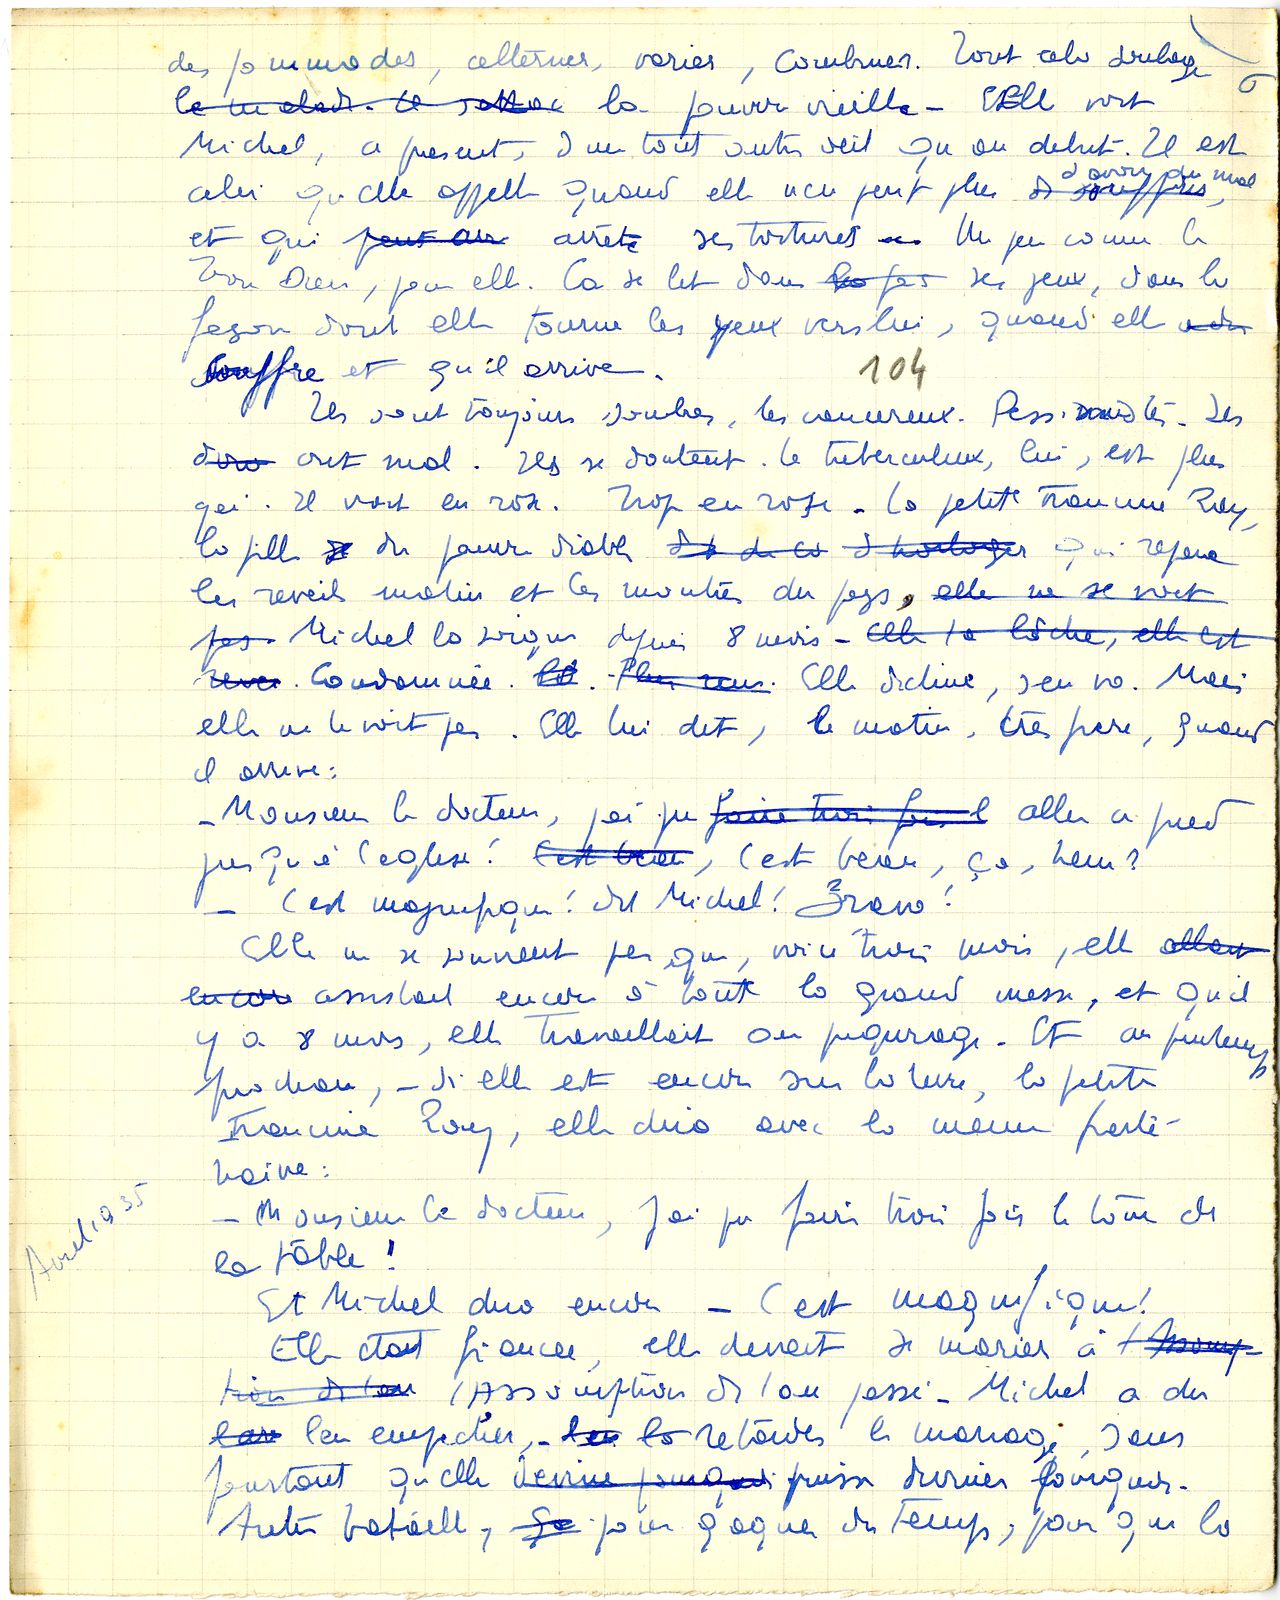 des pommades, alterner, varier, combiner. Tout cela soulage
6
le malade. la pauvre vieille - Elle voit
Michel, à présent, d'un tout autre oeil qu'au début. Il est
d'avoir du mal
celui qu'elle appelle quand elle n'en peut plus de souffrir,
et qui peut arrête ses tortures. Un peu comme le
Bon Dieu, pour elle. Ca se lit dans ses yeux, dans la
façon dont elle tourne les yeux vers lui, quand elle
souffre et qu'il arrive.
104
Ils sont toujours sombres, les cancéreux. Pessimistes. Les
ont mal. Ils se doutent. Le tuberculeux, lui, est plus
gai. Il voit en rose. Trop en rose - La petite Francine Roy,
la fille du pauvre diable d'horloger qui répare
les réveils matin et les montres du pays, elle ne se voit
pas. Michel la soigne depuis 8 mois - elle la lâche, elle est
Condamnée. Elle décline, s'en va. Mais
elle ne le voit pas. Elle lui dit, le matin, très fière, quand
il arrive:
- Monsieur le docteur, j'ai pu faire trois fois l aller à pied
jusqu'à l'église! C'est beau, c'est beau, ça, hein?
- C'est magnifique! dit Michel! Bravo!
Elle ne se souvient pas que, voici trois mois, elle allait
encore assistait encore à toute la grand messe, et qu'il
y a 8 mois, elle travaillait au piqurage. Et au printemps
prochain, - si elle est encore sur la terre, la petite
Francine Roy, elle dira avec la même
haine:
- Monsieur le docteur, j'ai pu faire trois fois le tour de
la table!
Avril 1935
Et Michel dira encore - C'est magnifique!
Elle était fiancée, elle devait se marier à l'Assomp-
tion de l'an l'Assomption de l'an passé - Michel a du
l'en empêcher, - la retarder le mariage, sans
pourtant qu'elle devine pourquoi puisse deviner pourquoi.
Autre bataille, pour gagner du temps, pour que la